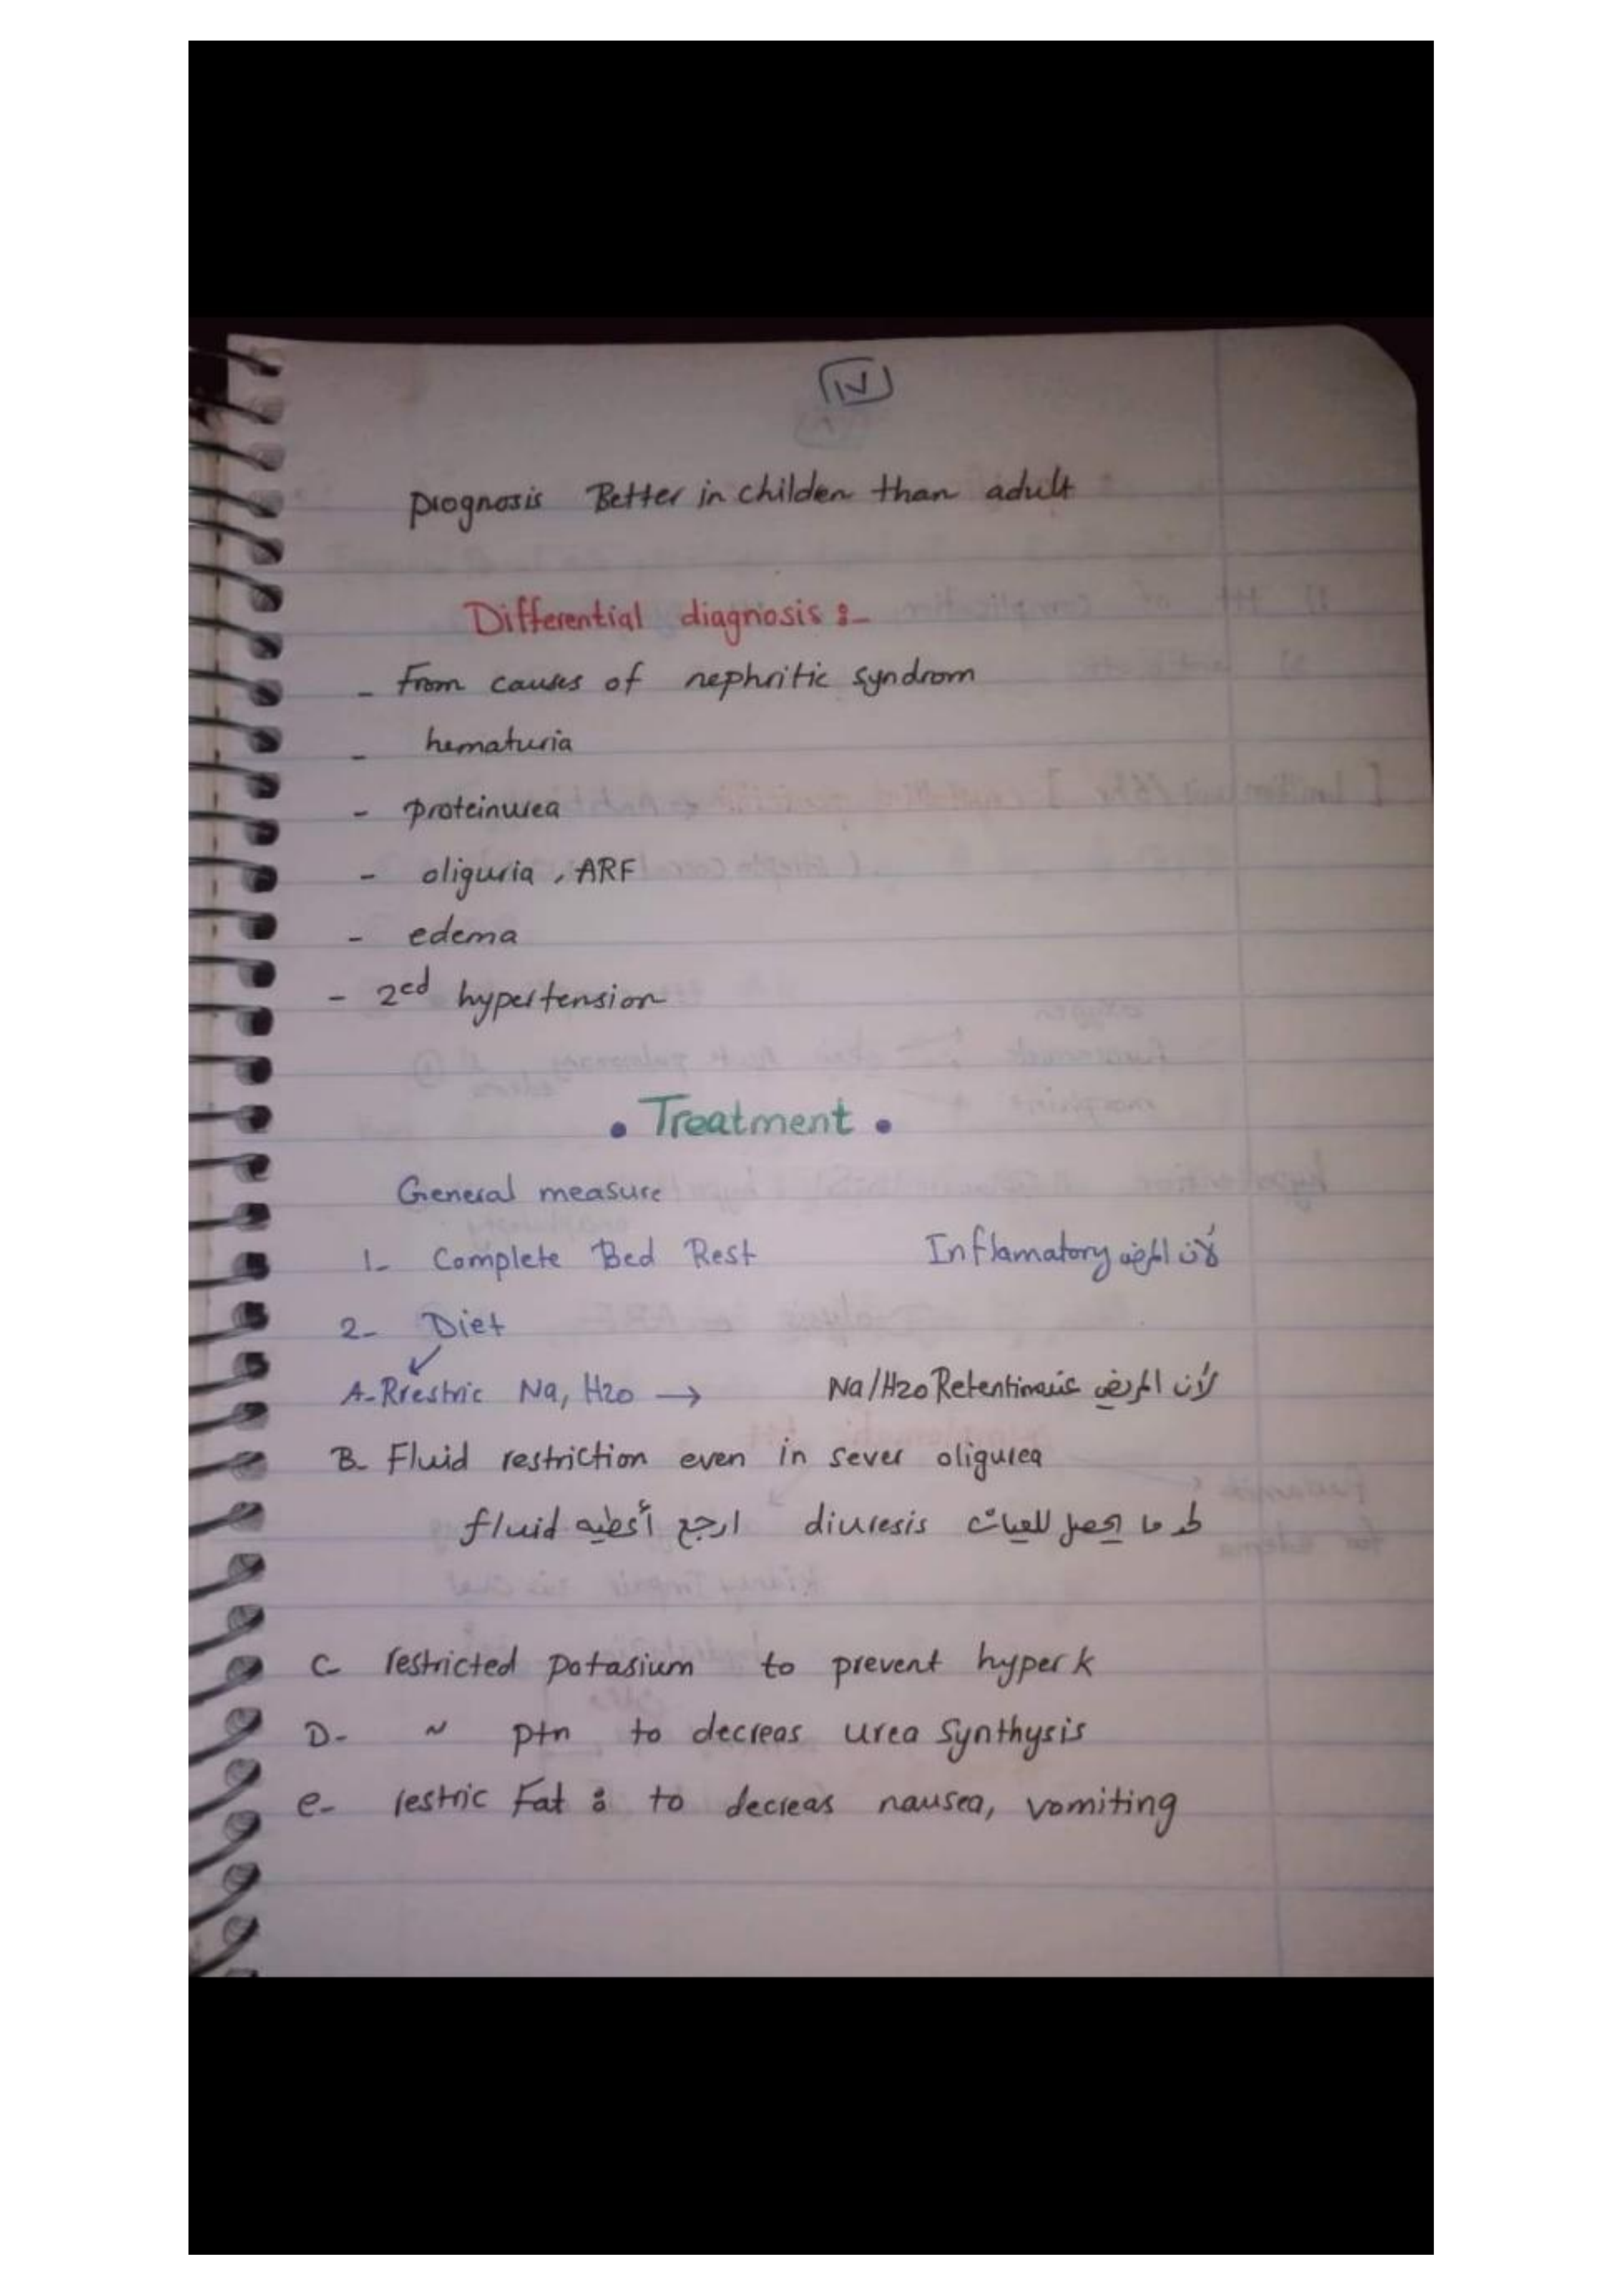 ١٧
prognosis Better in childen than adult
Differential diagnosis :-
- From causes of nephritic syndrom
- hematuria
- proteinurea
- oliguria , ARF
- edema
- 2ed hypertension
• Treatment •
General measure
1- Complete Bed Rest لأن المرض Inflamatory
2- Diet
A- Rrestric Na, H2o → لأن المريض عنده Na/H2o Retention
B- Fluid restriction even in sever oligurea
لحد ما يحصل للعيان diuresis ارجع أعطيه fluid
C- restricted potasium to prevent hyper k
D- ~ ptn to decreas urea Synthysis
e- restric Fat : to decreas nausea, vomiting